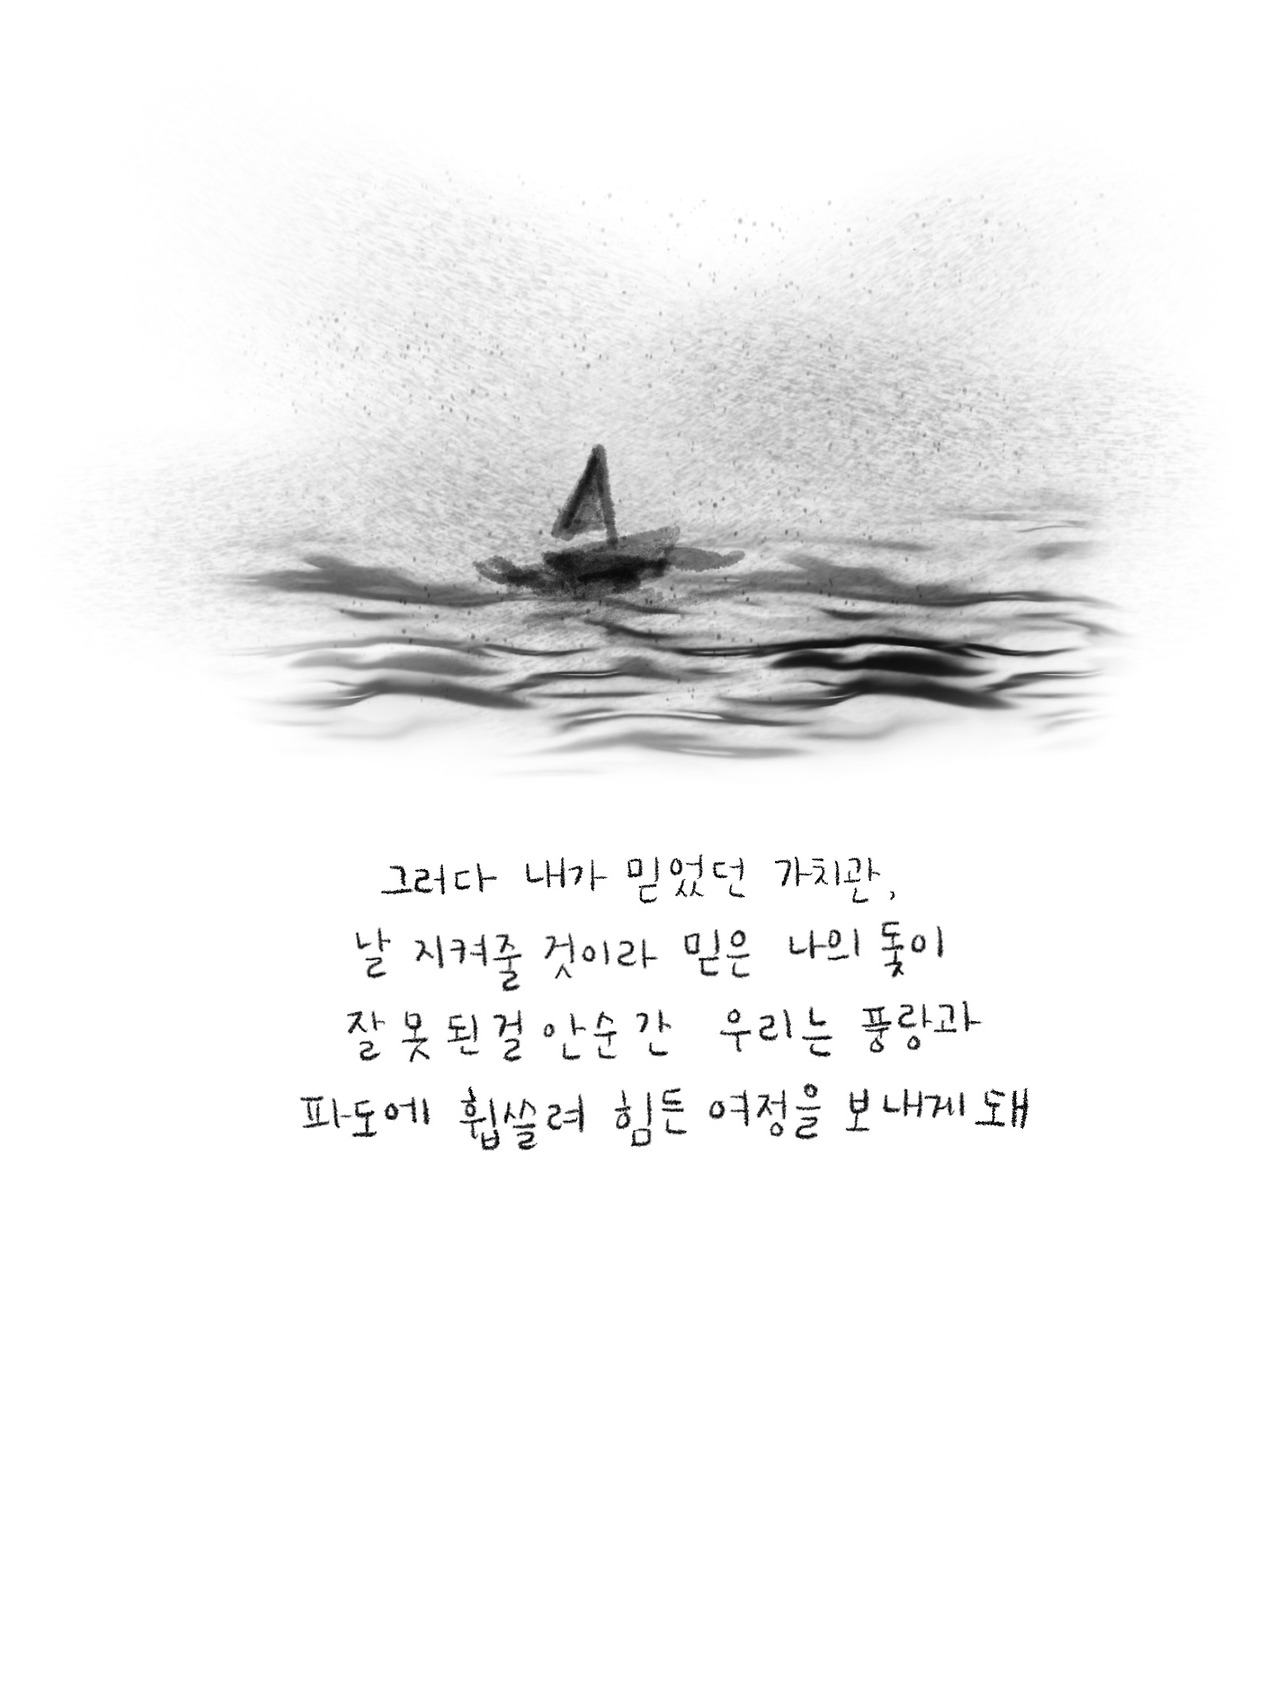 그러다 내가 믿었던 가치관,
날 지켜줄 것이라 믿은 나의 돛이
잘못된걸 안순간 우리는 풍랑과
파도에 휩쓸려 힘든 여정을 보내게 돼